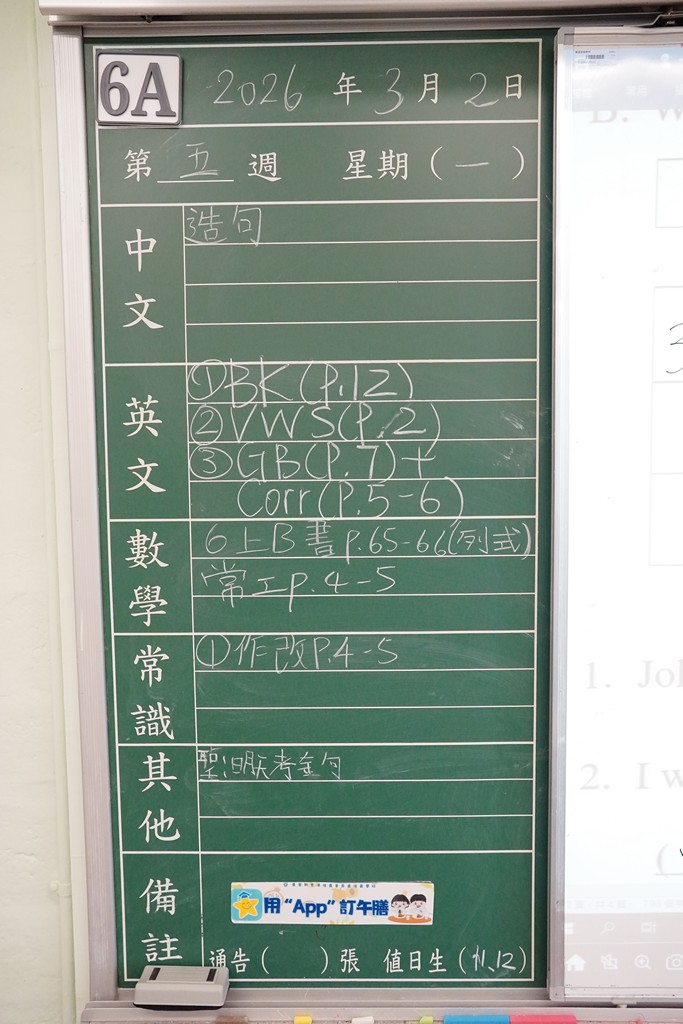 6A 2026 年 3 月 2 日
第 五 週 星期（一）
中文
造句
英文
①BK(P.12)
②VWS(P.2)
③GB(P.7)+
Corr(P.5-6)
數學
6上B書 p.65-66(列式)
常工p.4-5
常識
①作改P.4-5
其他
聖:明天考金句
備註
用 “App” 訂午膳
通告（ ）張 值日生（11、12）
B. W
1. Joh
2. I w